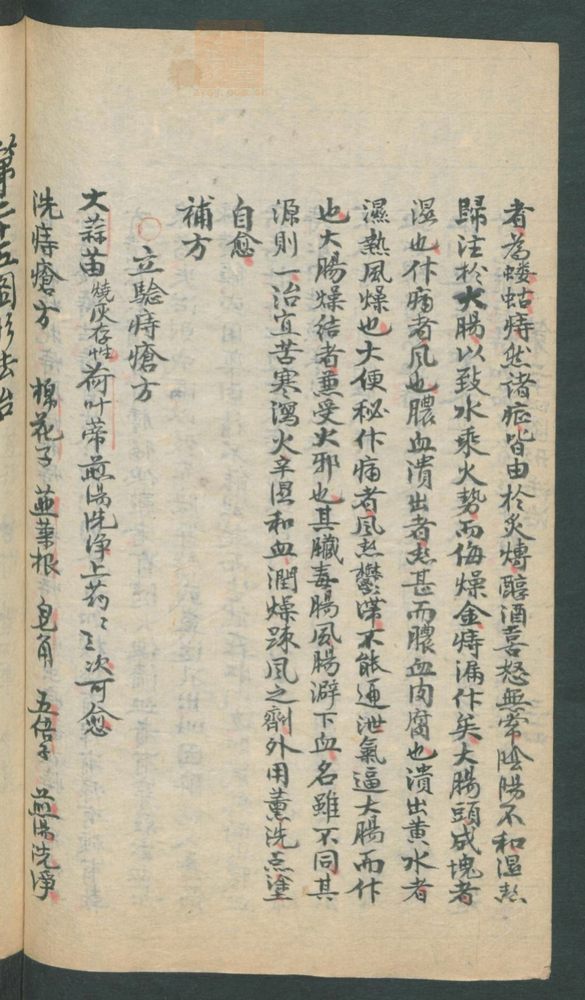 者為螻蛄痔然諸症皆由於炙煿醇酒喜怒無常陰陽不和濕热
歸注於大腸以致水乘火勢而侮燥金痔漏作矣大腸頭成塊者
湿也作痛者风也膿血潰出者热甚而膿血肉腐也潰出黄水者
濕熱風燥也大便秘作痛者风热鬱滞不能通泄氣逼大腸而作
也大腸燥结者兼受火邪也其臟毒腸风腸澼下血名雖不同其
源則一治宜苦寒瀉火辛湿和血潤燥踈风之劑外用薰洗点塗
自愈
補方
○立驗痔瘡方
大蒜苗燒灰存性荷叶蒂煎湯洗净上药二三次可愈
洗痔瘡方 棉花子 葉根 皂角 五倍子 煎湯洗淨
第二十五圖形去治